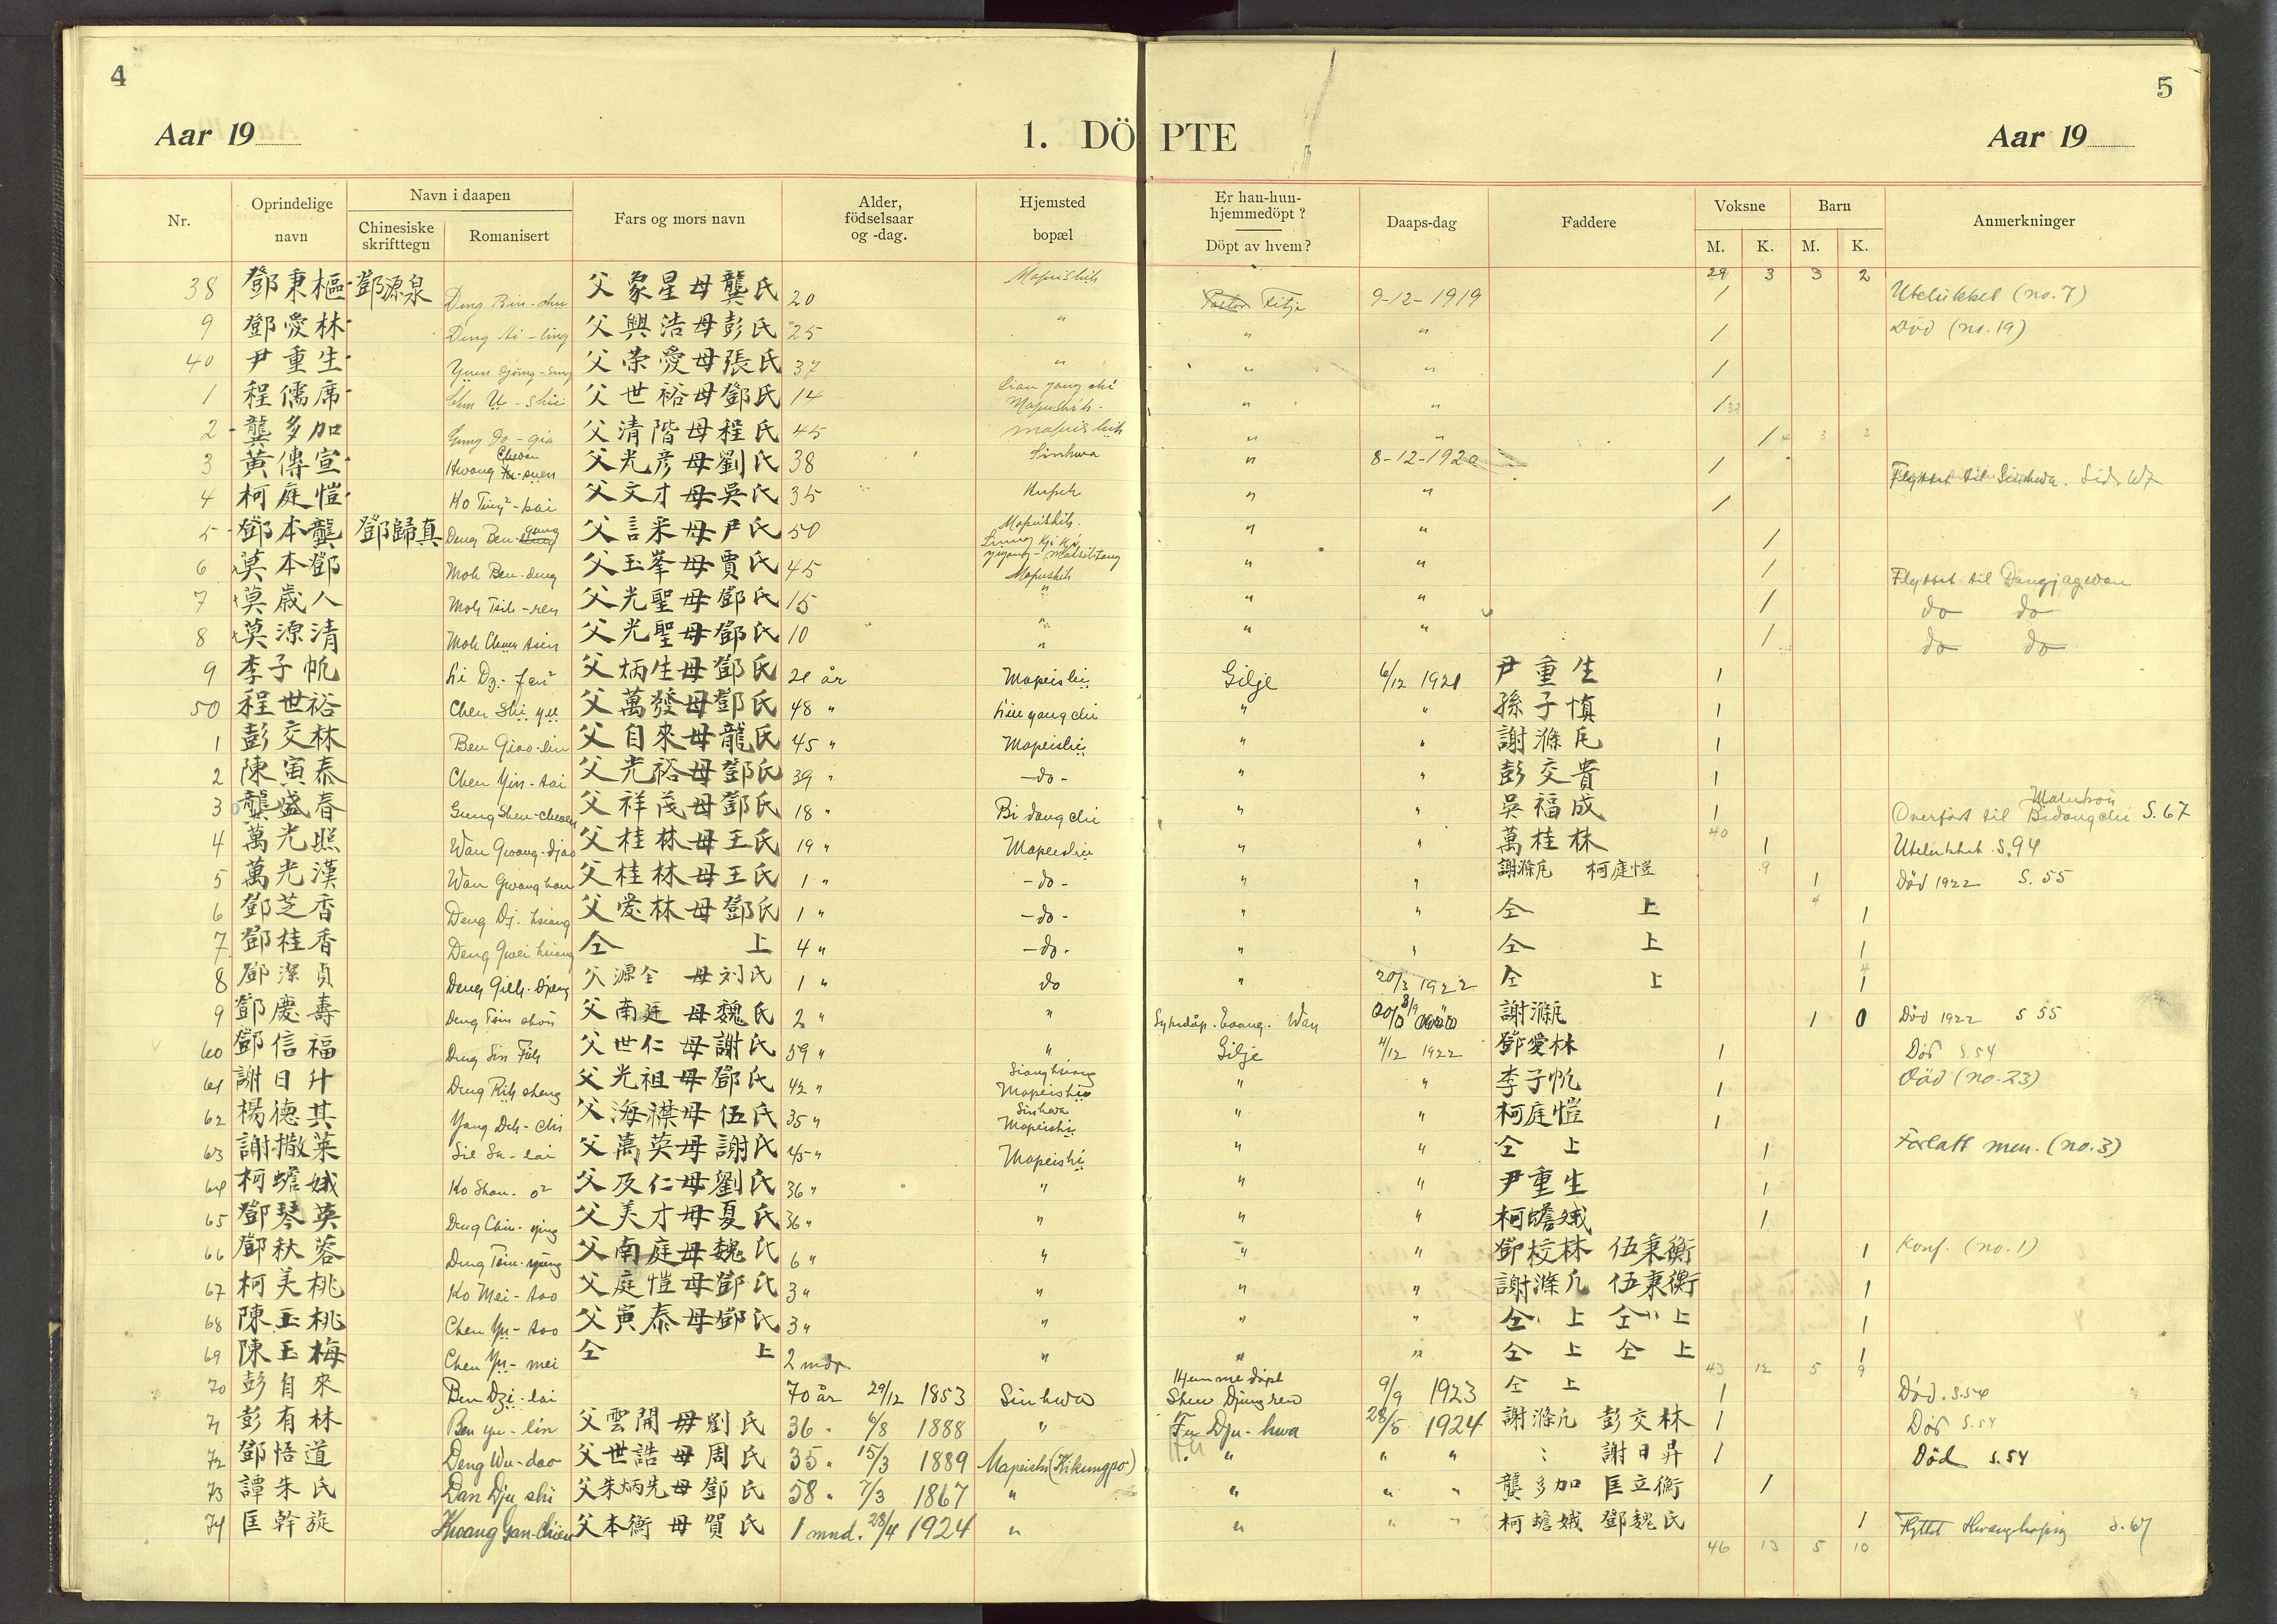 4
5
Aar 19
1. DÖPTE
Aar 19
Nr.
Oprindelige navn
Navn i daapen
Chinesiske skrifttegn
Romanisert
Fars og mors navn
Alder, födselsaar og -dag.
Hjemsted bopæl
Er han-hun-hjemmedöpt?
Döpt av hvem?
Daaps-dag
Faddere
Voksne
M. K.
Barn
M. K.
Anmerkninger
29 3 3 2
38 鄧秉樞 鄧源泉 Deng Bin-chu 父象星母龔氏 20 Mapeishih Pastor Gilje 9-12-1919 1 Utelukket (no. 7)
9 鄧愛林 Deng Ai-ling 父興浩母彭氏 25 " " " 1 Död (no. 19)
40 尹重生 父荣愛母張氏 37 " " " 1
1 程儒席 父世裕母鄧氏 14 Mapeishih " " 1 33
2 龔多加 Gung Do-gia 父清階母程氏 45 Mapeishih " " 1 4 3 2
3 黃傳宣 Hwang Chwan-suen 父光彦母劉氏 38 Sinhwa " 8-12-1920 1 Flyttet til Sinhwa. Side 67
4 柯庭愷 Ko Ting²-kai 父文才母吳氏 35 Hupeh " " 1
5 鄧本龔 鄧歸真 Deng Ben-gung 父言采母尹氏 50 Mapeishih " " 1
6 莫本鄧 Moh Ben-deng 父玉峯母賈氏 45 Mapeishih " " 1 Flyttet til Dangjagewan
7 莫歲人 Moh Tsih-ren 父光聖母鄧氏 15 " " " 1 do do
8 莫源清 父光聖母鄧氏 10 " " " 1 do do
9 李子帆 Li Dz-fan² 父炳生母鄧氏 21 år Mapeishi Gilje 6/12 1921 尹重生 1
50 程世裕 Chen Shi yu 父萬發母鄧氏 48 " Liu yang chi " " 孫子慎 1
1 彭交林 Ben Giao-lin 父自來母龍氏 45 " Mapeishi " " 謝滌凡 1
2 陳寅泰 Chen Yin-tai 父光裕母鄧氏 39 " -do- " " 彭交貴 1
3 龔盛春 Gung Shen-chwen 父祥茂母鄧氏 18 " Bi dang chi " " 吳福成 1 Overfört til Bidangchi S. 67
40
4 萬光照 Wan Gwang-djao 父桂林母王氏 19 " Mapeishi " " 萬桂林 1 Utelukket S. 94
9
5 萬光漢 Wan Gwang han 父桂林母王氏 1 " -do- " " 謝滌凡 柯庭愷 1 Död 1922 S. 55
4
6 鄧芝香 Deng Dj. hsiang 父愛林母鄧氏 1 " -do- " " 仝上 1
7 鄧桂香 Deng Gwei hsiang 仝上 4 " -do- " " 仝上 1
4
8 鄧潔貞 Deng Gieh-djeng 父源全 母刘氏 1 " do " 20/3 1922 仝上 1
9 鄧慶壽 Deng Tsin shou 父南廷母魏氏 2 " " Wan 謝滌凡 1 0 Död 1922 S 55
60 鄧信福 Deng Sin Fuh 父世仁母謝氏 59 " " Gilje 4/12 1922 鄧愛林 1 Död S. 54
61 謝日升 Deng Rih sheng 父光祖母鄧氏 42 " Mapeishi " " 李子帆 1 Död (no. 23)
62 楊德其 Yang Deh-chi 父海襟母伍氏 35 " Sinhwa Mapeishi " " 柯庭愷 1
63 謝撒萊 Sie Sa-lai 父萬英母謝氏 45 " Mapeishi " " 仝上 1 Forlatt men. (no. 3)
64 柯蟾娥 Ko Shan-o² 父及仁母劉氏 36 " " " " 尹重生 1
65 鄧琴英 Deng Chin-ying 父美才母夏氏 36 " " " " 柯蟾娥 1
66 鄧秋蓉 父南庭母魏氏 6 " " " " 鄧校林 伍秉衡 1 Konf. (no. 1)
67 柯美桃 Ko Mei-tao 父庭愷母鄧氏 3 " " " " 謝滌凡 伍秉衡 1
68 陳玉桃 Chen Yu-tao 父寅泰母鄧氏 3 " " " " 仝上 仝上 1
69 陳玉梅 Chen Yu-mei 仝上 2 mdr " " " 仝上 仝上 1
43 12 5 9
70 彭自來 Ben Dzi-lai 70 år 29/12 1853 Sinhwa Hjemmedöpt Shen Djung ren 9/9 1923 仝上 1 Död. S. 54
71 彭有林 Ben yu-lin 父雲開母劉氏 36 " 6/8 1888 " Fu Dju-hwa 28/5 1924 謝滌凡 彭交林 1 Död S. 54
72 鄧悟道 Deng Wu-dao 父世誥母周氏 35 " 15/3 1889 Mapeishi (Kikungpo) " " " 謝日昇 1 Död S. 54
73 譚朱氏 Dan Dju shi 父朱炳先母鄧氏 58 " 7/3 1867 " " " " 龔多加 匡立衡 1
74 匡幹旋 Kwang Gan-chien 父本衡母賀氏 1 mnd. 28/4 1924 " " " " 柯蟾娥 鄧魏氏 1 Flyttet S. 67
46 13 5 10